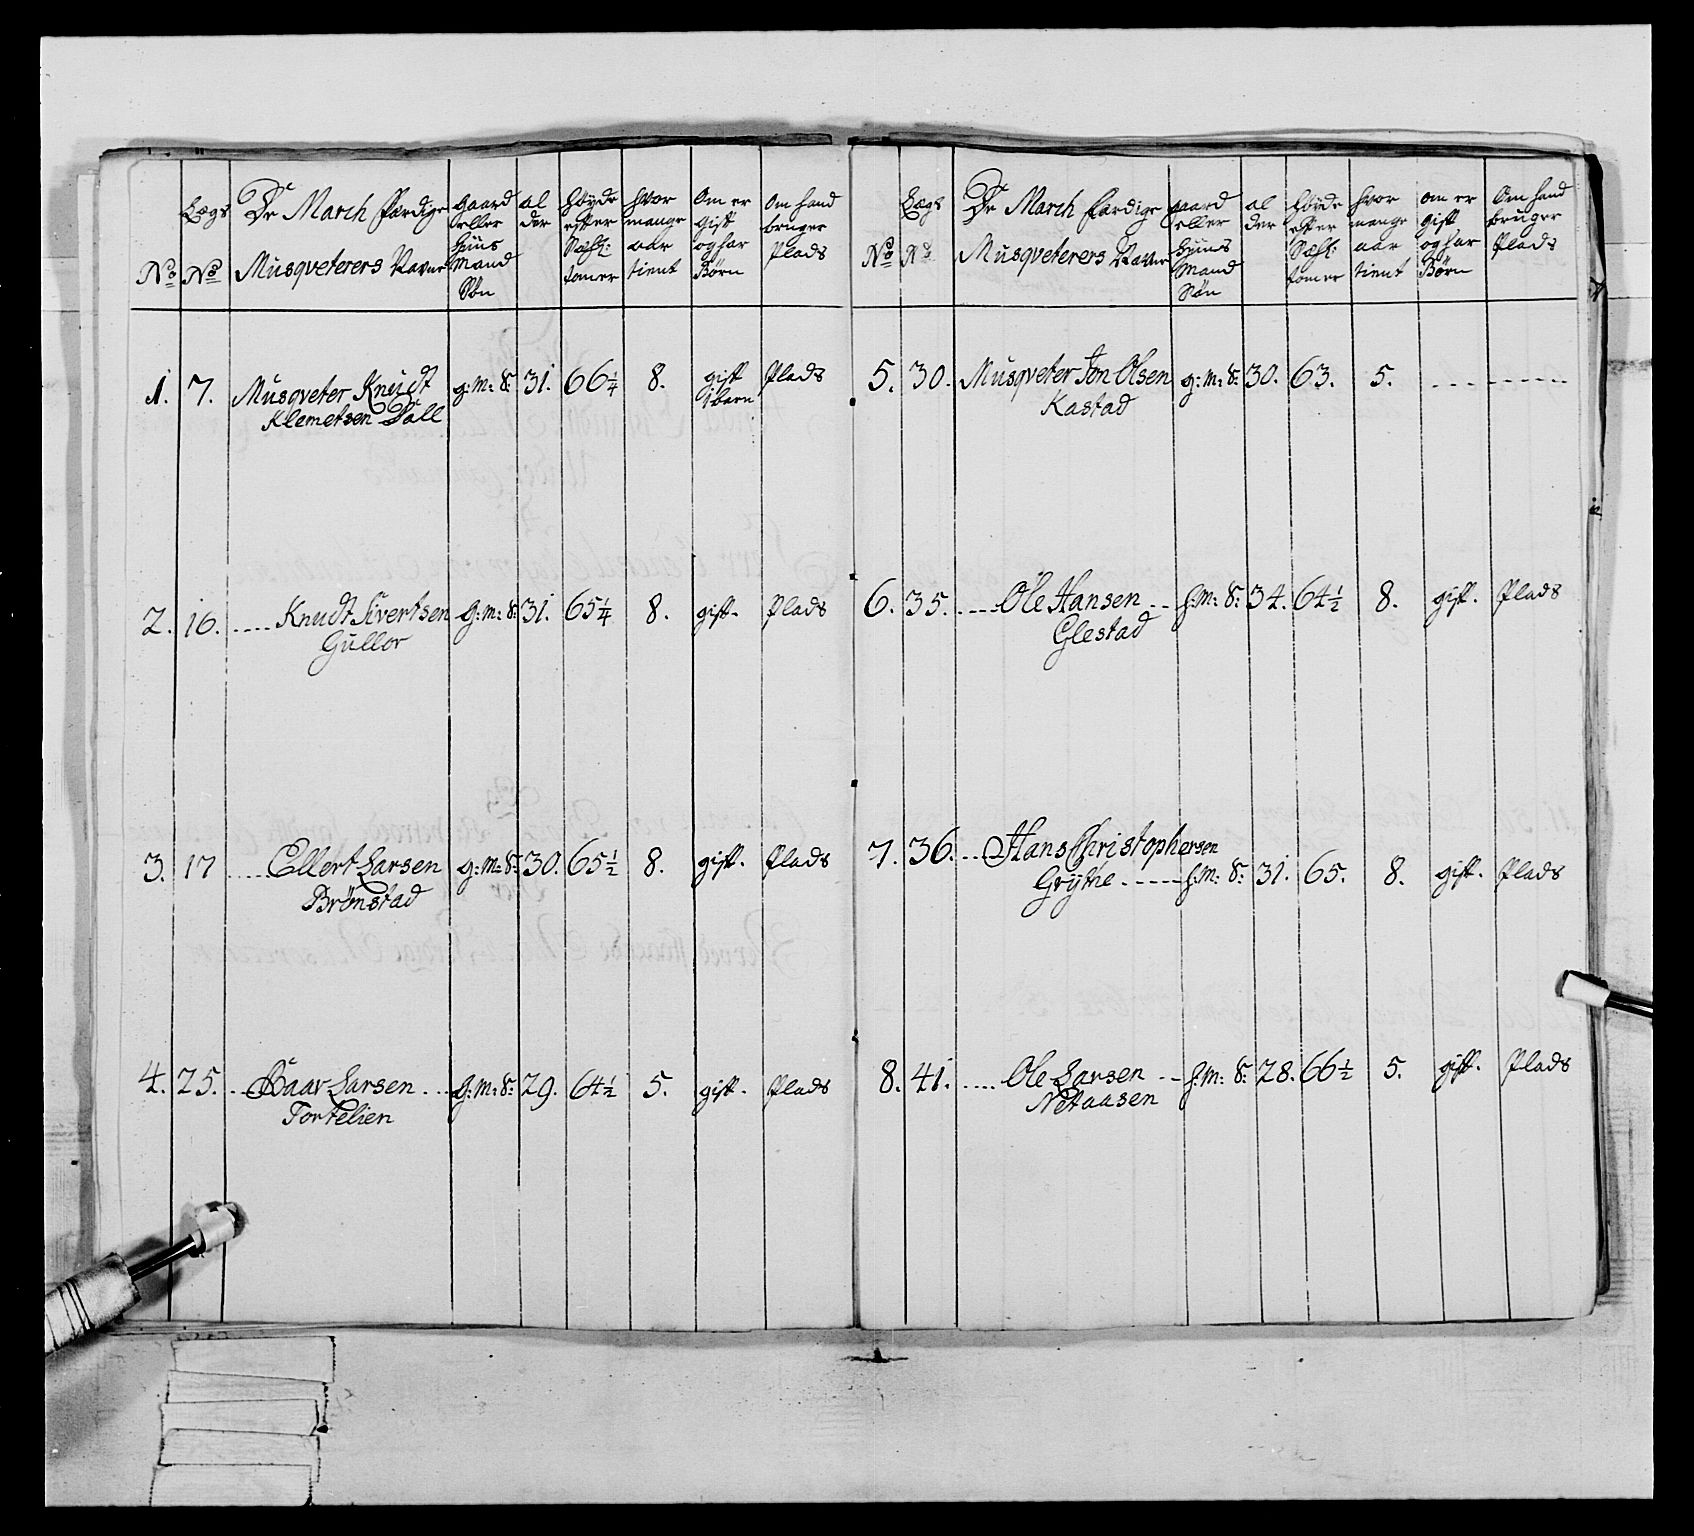 No Lægs No De March Færdige Musqveterers Navne gaard eller Huus Mand Søn al der Høyde efter Sæst: tomer hvor mange aar tient Om er gift og har Børn Om hand bruger Plads
1. 7. Musqveter Knudt g: M: S: 31. 66 1/4 8. gift 1 barn Plads
Klemetsen Dall
2. 16. .... Knudt Sivertsen g: M: S: 31. 65 1/4 8. gift. Plads
Gullor
3. 17 .... Ellert Larsen g: M: S: 30. 65 1/2 8. gift. Plads
Brønstad
4. 25. ... Baar Larsen ... M: S: 29. 64 1/2 5. gift. Plads
Tortelien
No Lægs No De March færdige Musqveterers Navne gaard eller Huus Mand Søn al der Høyde efter Sæst: tomer hvor mange aar tient om er gift og har Børn Om hand bruger Plads
5. 30. Musqveter Jon Olsen g: M: S: 30. 63. 5. .... ......
Kastad
6. 35. .... Ole Hansen ... H: M: S: 34. 64 1/2 8. gift. Plads
Glestad
7. 36. ... Hans Christophersen
Grythe ..... H: M: S: 31. 65. 8. gift. Plads
8. 41. .... Ole Larsen ... H: M: S: 28. 66 1/2 5. gift. Plads
Netaasen